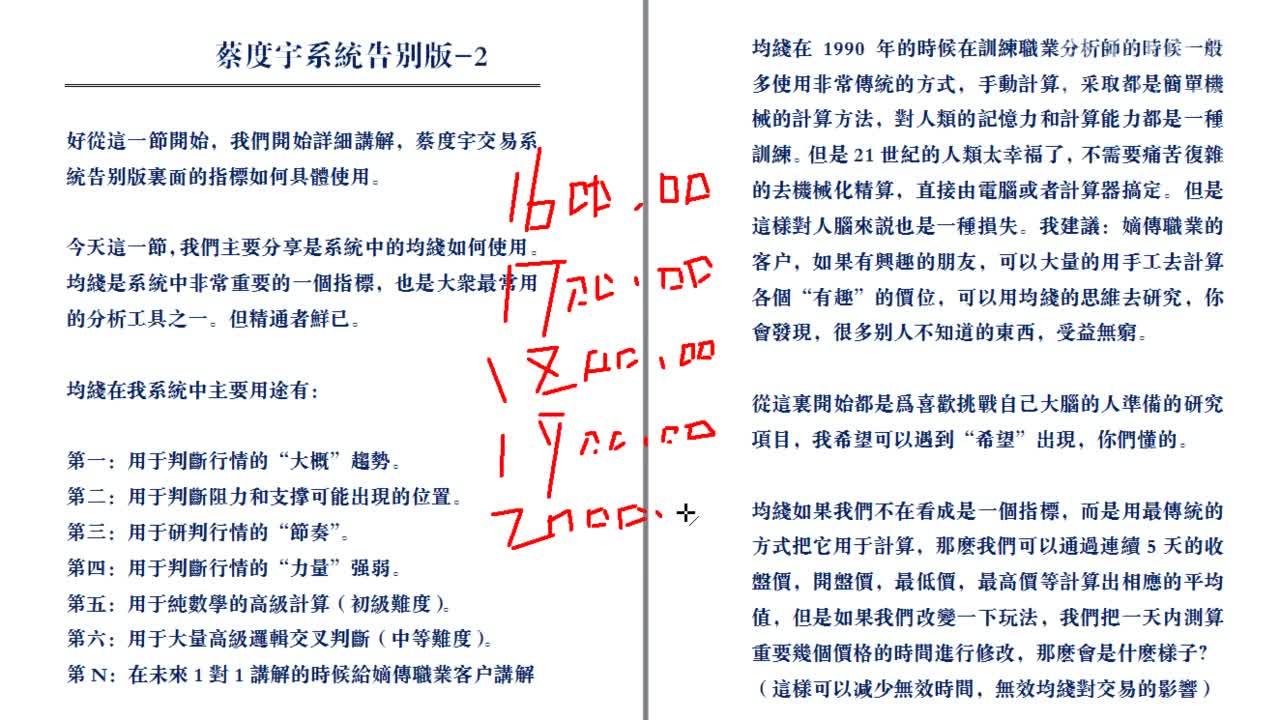 蔡度宇系統告别版-2
好從這一節開始，我們開始詳細講解，蔡度宇交易系
統告别版裏面的指標如何具體使用。
今天這一節，我們主要分享是系統中的均綫如何使用。
均綫是系統中非常重要的一個指標，也是大衆最常用
的分析工具之一。但精通者鮮已。
均綫在我系統中主要用途有：
第一：用于判斷行情的“大概”趨勢。
第二：用于判斷阻力和支撐可能出現的位置。
第三：用于研判行情的“節奏”。
第四：用于判斷行情的“力量”强弱。
第五：用于純數學的高級計算（初級難度）。
第六：用于大量高級邏輯交叉判斷（中等難度）。
第 N：在未來 1 對 1 講解的時候給嫡傳職業客户講解
1600.00
1700.00
1800.00
1900.00
2000.
均綫在 1990 年的時候在訓練職業分析師的時候一般
多使用非常傳統的方式，手動計算，采取都是簡單機
械的計算方法，對人類的記憶力和計算能力都是一種
訓練。但是 21 世紀的人類太幸福了，不需要痛苦復雜
的去機械化精算，直接由電腦或者計算器搞定。但是
這樣對人腦來説也是一種損失。我建議：嫡傳職業的
客户，如果有興趣的朋友，可以大量的用手工去計算
各個“有趣”的價位，可以用均綫的思維去研究，你
會發現，很多别人不知道的東西，受益無窮。
從這裏開始都是爲喜歡挑戰自己大腦的人準備的研究
項目，我希望可以遇到“希望”出現，你們懂的。
均綫如果我們不在看成是一個指標，而是用最傳統的
方式把它用于計算，那麽我們可以通過連續 5 天的收
盤價，開盤價，最低價，最高價等計算出相應的平均
值，但是如果我們改變一下玩法，我們把一天内測算
重要幾個價格的時間進行修改，那麽會是什麽樣子？
（這樣可以减少無效時間，無效均綫對交易的影響）